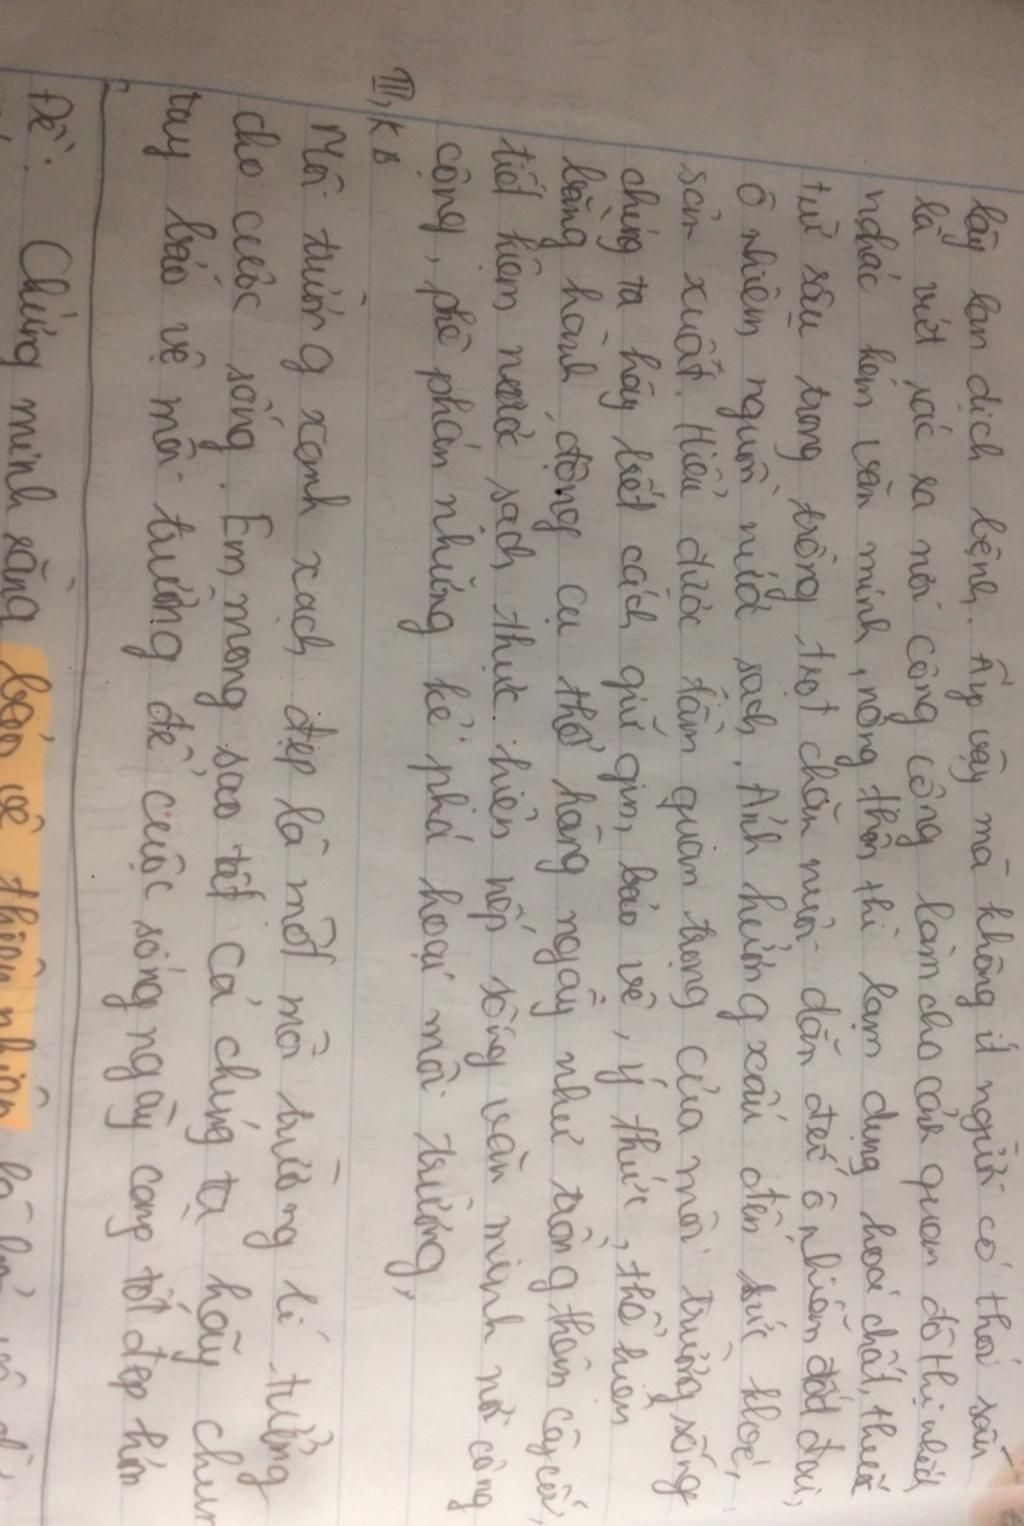 lây lan dịch bệnh. Ấy vậy mà không ít người có thói
là vứt rác ra nơi công cộng làm cho cảnh quan đô thị
nhác kém văn minh, nông thôn thì lạm dụng hoá chất, thuốc
trừ sâu trong trồng trọt chăn nuôi dẫn đến ô nhiễm đất đai,
ô nhiễm nguồn nước sạch. Ảnh hưởng xấu đến sức khoẻ,
sản xuất. Hiểu được tầm quan trọng của môi trường sống
chúng ta hãy biết cách giữ gìn, bảo vệ, ý thức, thể hiện
bằng hành động cụ thể hàng ngày như trồng thêm cây cối,
tiết kiệm nước sạch, thực hiện nếp sống văn minh nơi công
cộng, phê phán những kẻ phá hoại môi trường,
III, KB
Môi trường xanh xạch đẹp là một môi trường lí tưởng
cho cuộc sống. Em mong sao tất cả chúng ta hãy chun
tay bảo vệ môi trường để cuộc sống ngày càng tốt đẹp hơn
Đề: Chứng minh rằng bảo vệ thiên nhiên là bảo vệ